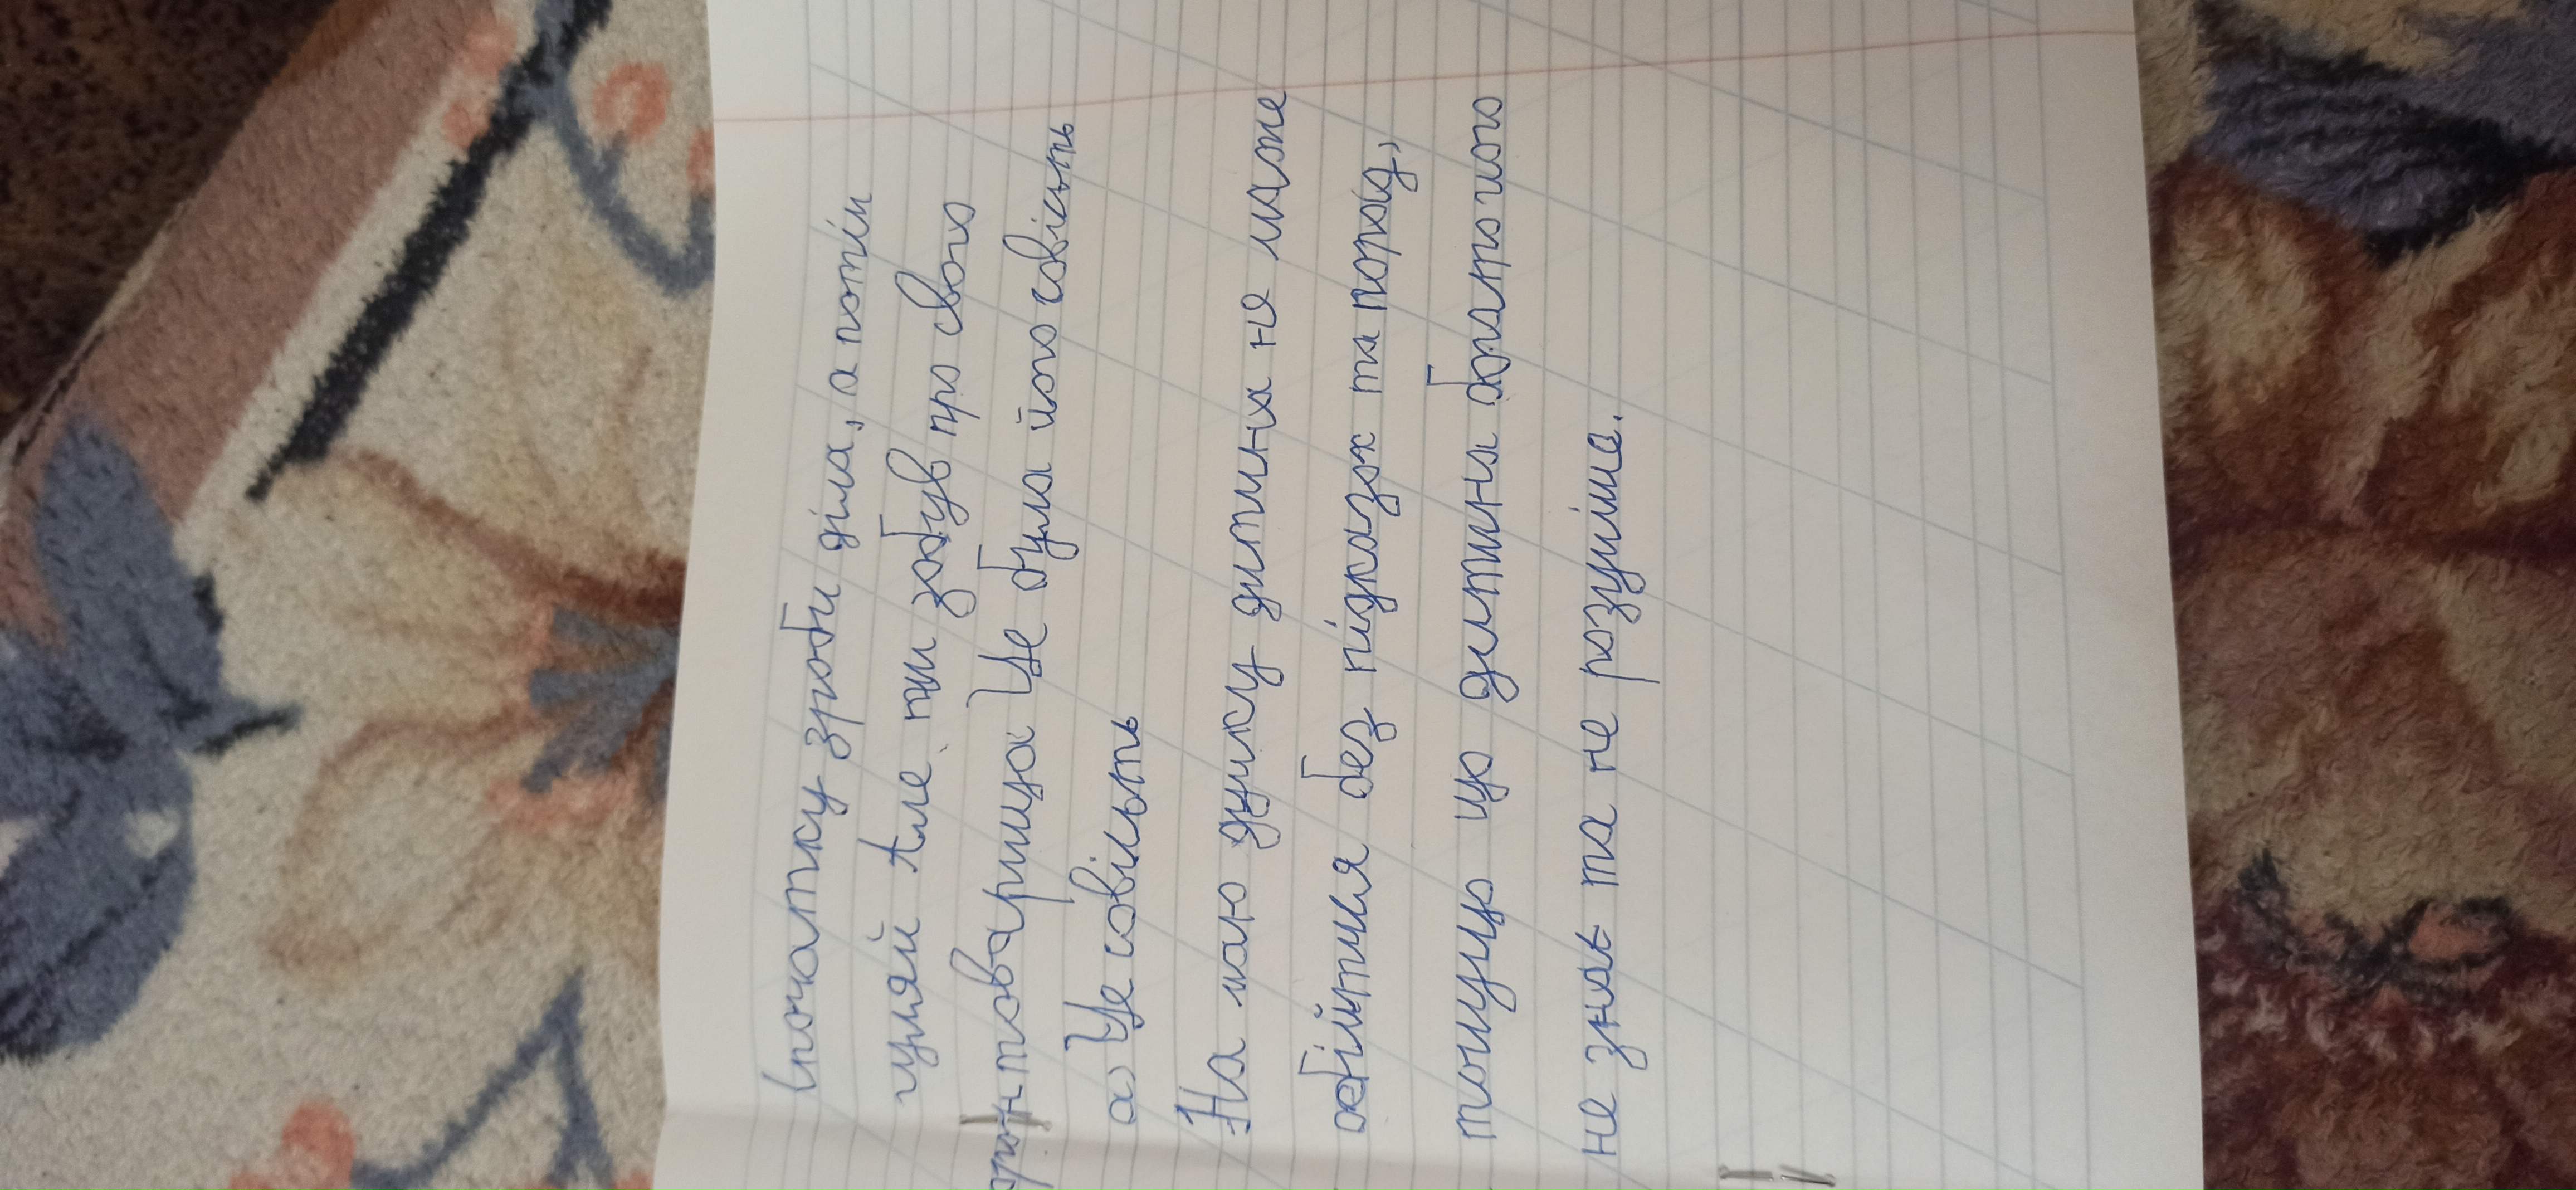 Спочатку зроби діла, а потім
гуляй Але ти забув про свого
товарища Це була його совість
а) Це совість
На мою думку дитина не може
обійтися без підказок та порад,
тому що дитина багато чого
не знає та не розуміє.